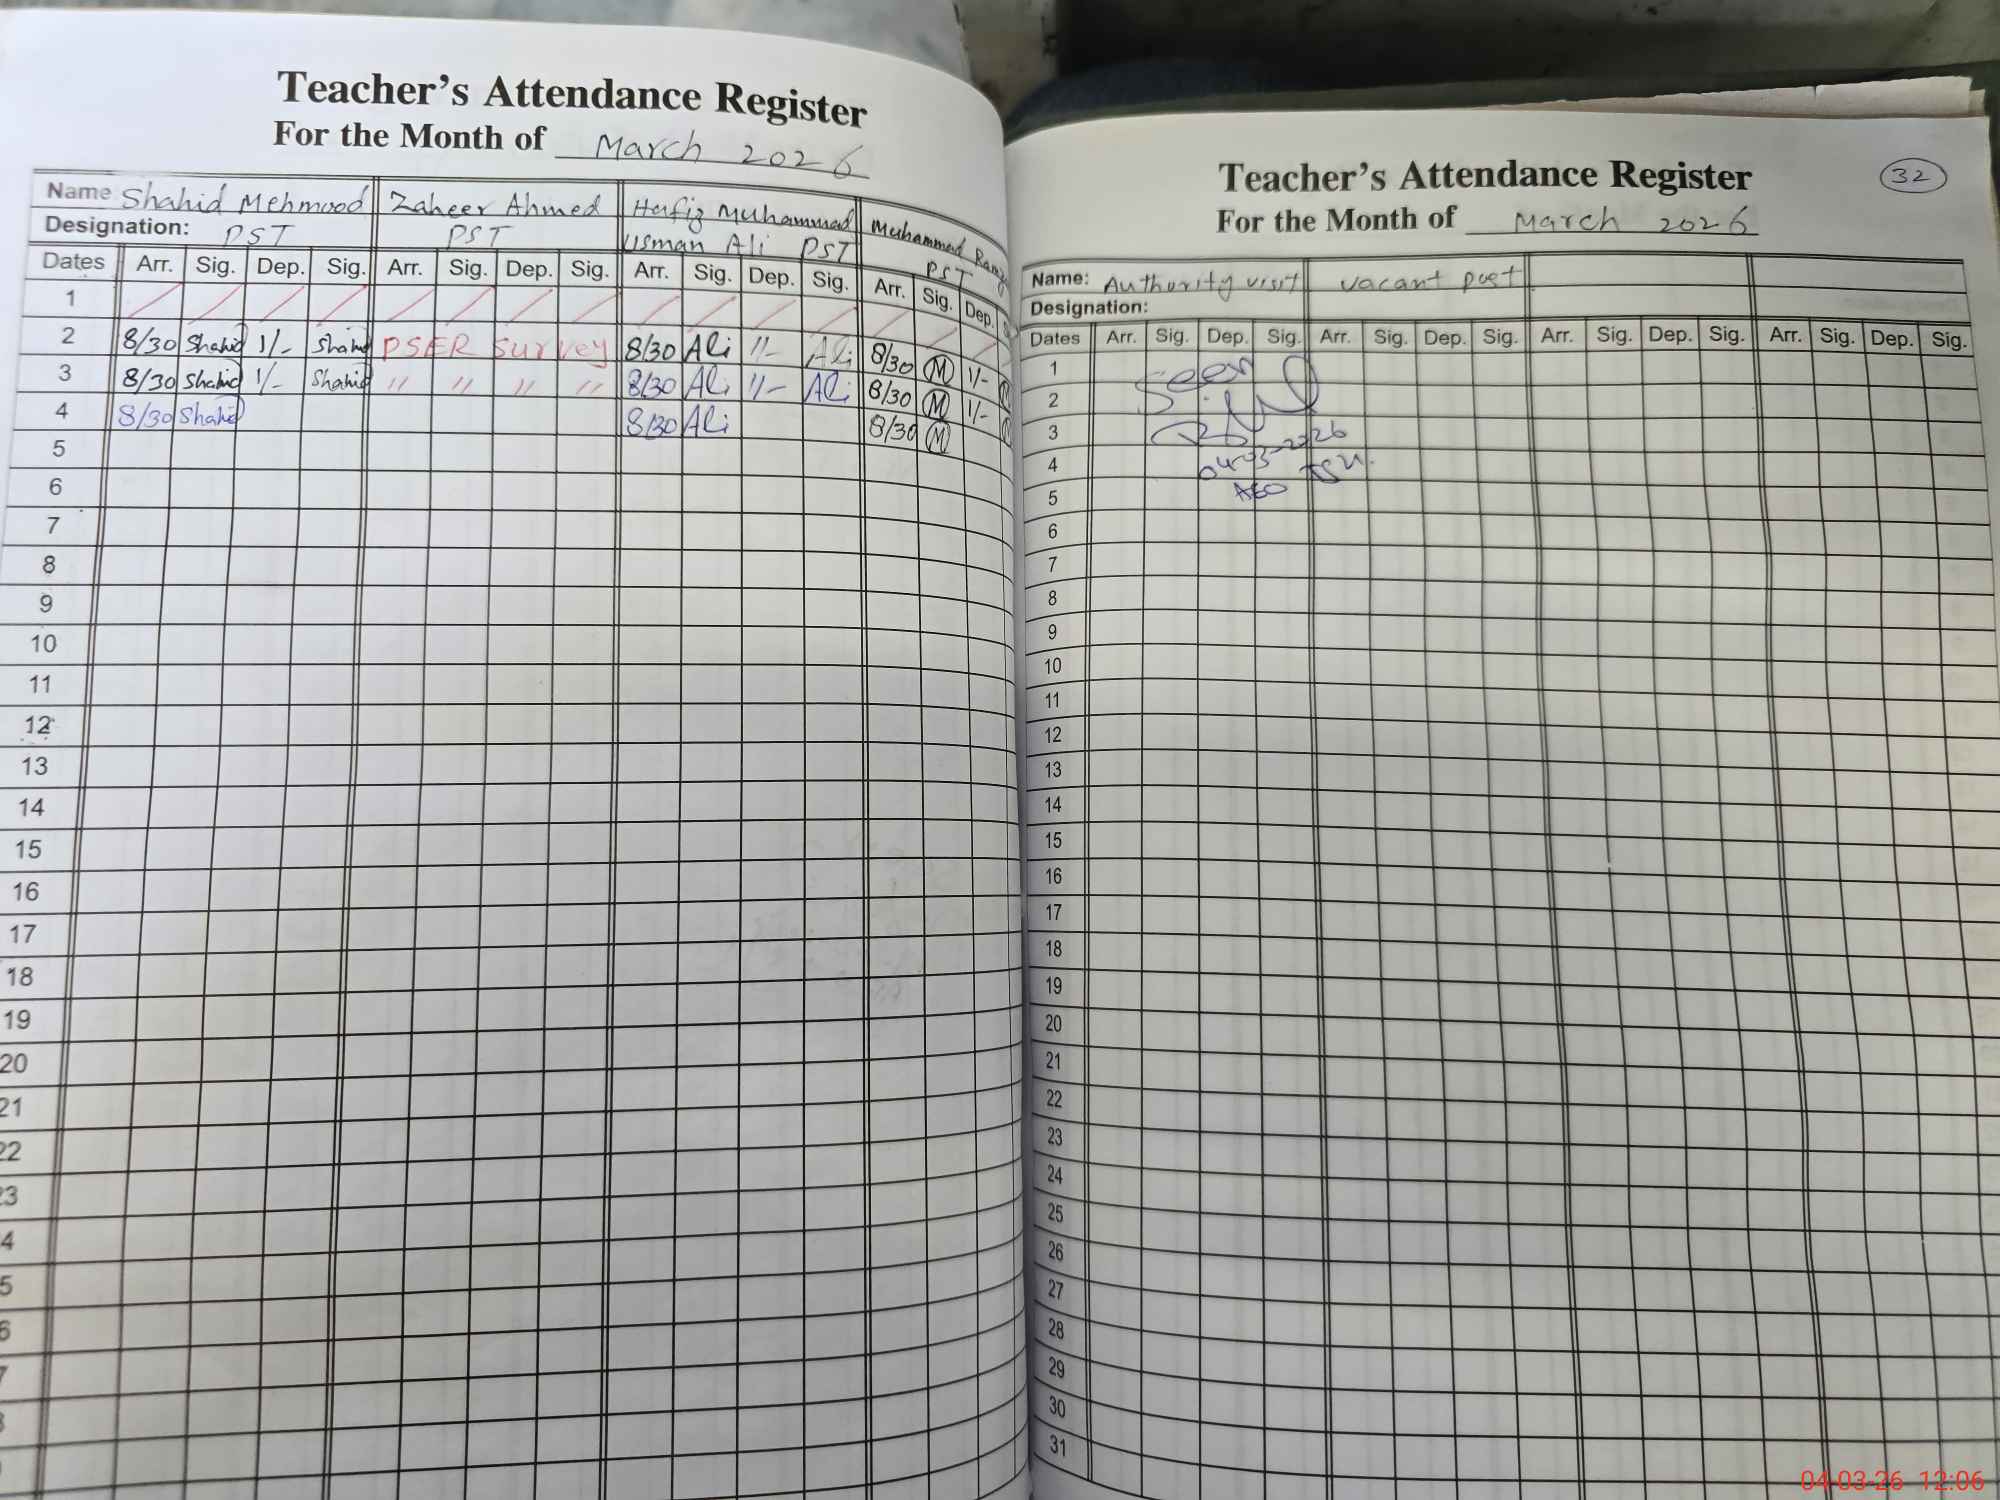 Teacher's Attendance Register
For the Month of March 2026
Name Shahid Mehmood Zaheer Ahmed Hafiz Muhammad Usman Ali PST Muhammad
Designation: PST PST PST
Dates Arr. Sig. Dep. Sig. Arr. Sig. Dep. Sig. Arr. Sig. Dep. Sig. Arr. Sig. Dep.
1
2 8/30 Shahid 1/- Shahid PSER Survey 8/30 Ali 1/- Ali 8/30 M 1/-
3 8/30 Shahid 1/- Shahid " " " " 8/30 Ali 1/- Ali 8/30 M 1/-
4 8/30 Shahid 8/30 Ali 8/30 M
5
6
7
8
9
10
11
12
13
14
15
16
17
18
19
20
21
22
23
4
5
6
7
Teacher's Attendance Register
32
For the Month of March 2026
Name: Authority visit vacant post
Designation:
Dates Arr. Sig. Dep. Sig. Arr. Sig. Dep. Sig. Arr. Sig. Dep. Sig. Arr. Sig. Dep. Sig.
1 Seen
2
3
4 04-03-2026
5 AEO
6
7
8
9
10
11
12
13
14
15
16
17
18
19
20
21
22
23
24
25
26
27
28
29
30
31
04-03-26 12:06